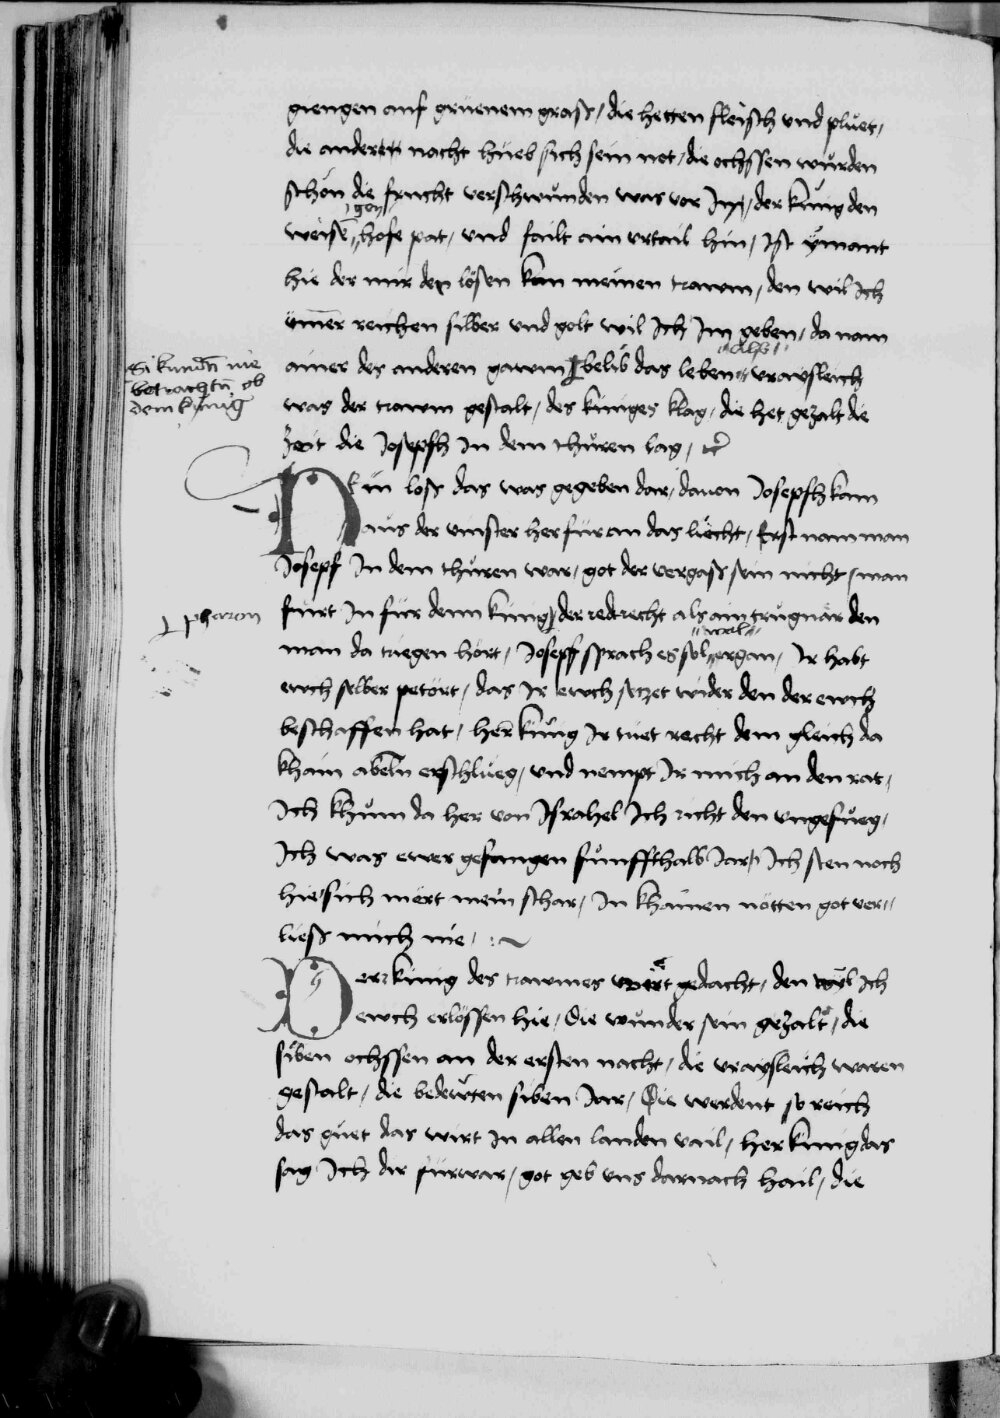 giengen auf grüenem grass / die hetten fleisch vnd pluet /
die anderen nacht hueb sich sein not / die ochssen wurden
schön die frucht verschwunden was vor Im / der künig den
gen
weisen hofe pat / vnd failt ain vrtail hin / Ist ÿmant
hie der mir den lösen kan meinen trawm / den wil Ich
ymer reichen silber vnd golt wil Ich Im geben / da nam
Als
ainer des anderen gawm belib das leben vraysleich
Si kundn nie
betrachtn ob
dem künig
was der trawm gestalt / des küniges klag / die het gezalt die
Zeit die Josepsh In dem thuren lag /
Ein loss das was gegeben dar / dauon Josepsh kam
aus der vinster herfür an das liecht / Erst nam man
Josepf In dem thuren war / got der vergass sein nicht / man
pharon
fürt In für denn künig der redt recht als ain trugnär den
wol
man da triegen hört / Josepf sprach es sol ergan / Ir habt
ewch selber petört / das Ir ewch setzet wider den der ewch
beschaffen hat / her künig Ir tuet recht dem gleich da
khain abeln erschlueg / vnd nempt Ir mich an den rat /
Ich khum da her von Israhel Ich richt den vngefueg /
Ich was ewer gefangen funffthalb Jar / Ich sten noch
hie / sich mert mein schar / In khainen nötten got ver
liess mich nie /
Herr künig des trawmes wirt gedacht / den wil Ich
ewch erlössen hie / Die wunder sein gezalt / die
siben ochssen an der ersten nacht / die vraysleich waren
gestalt / die bedewten siben Jar / Die werdent so reich
das guet das wirt In allen landen vail / her künig das
sag Ich dir fürwar / got geb vns darnach hail / die